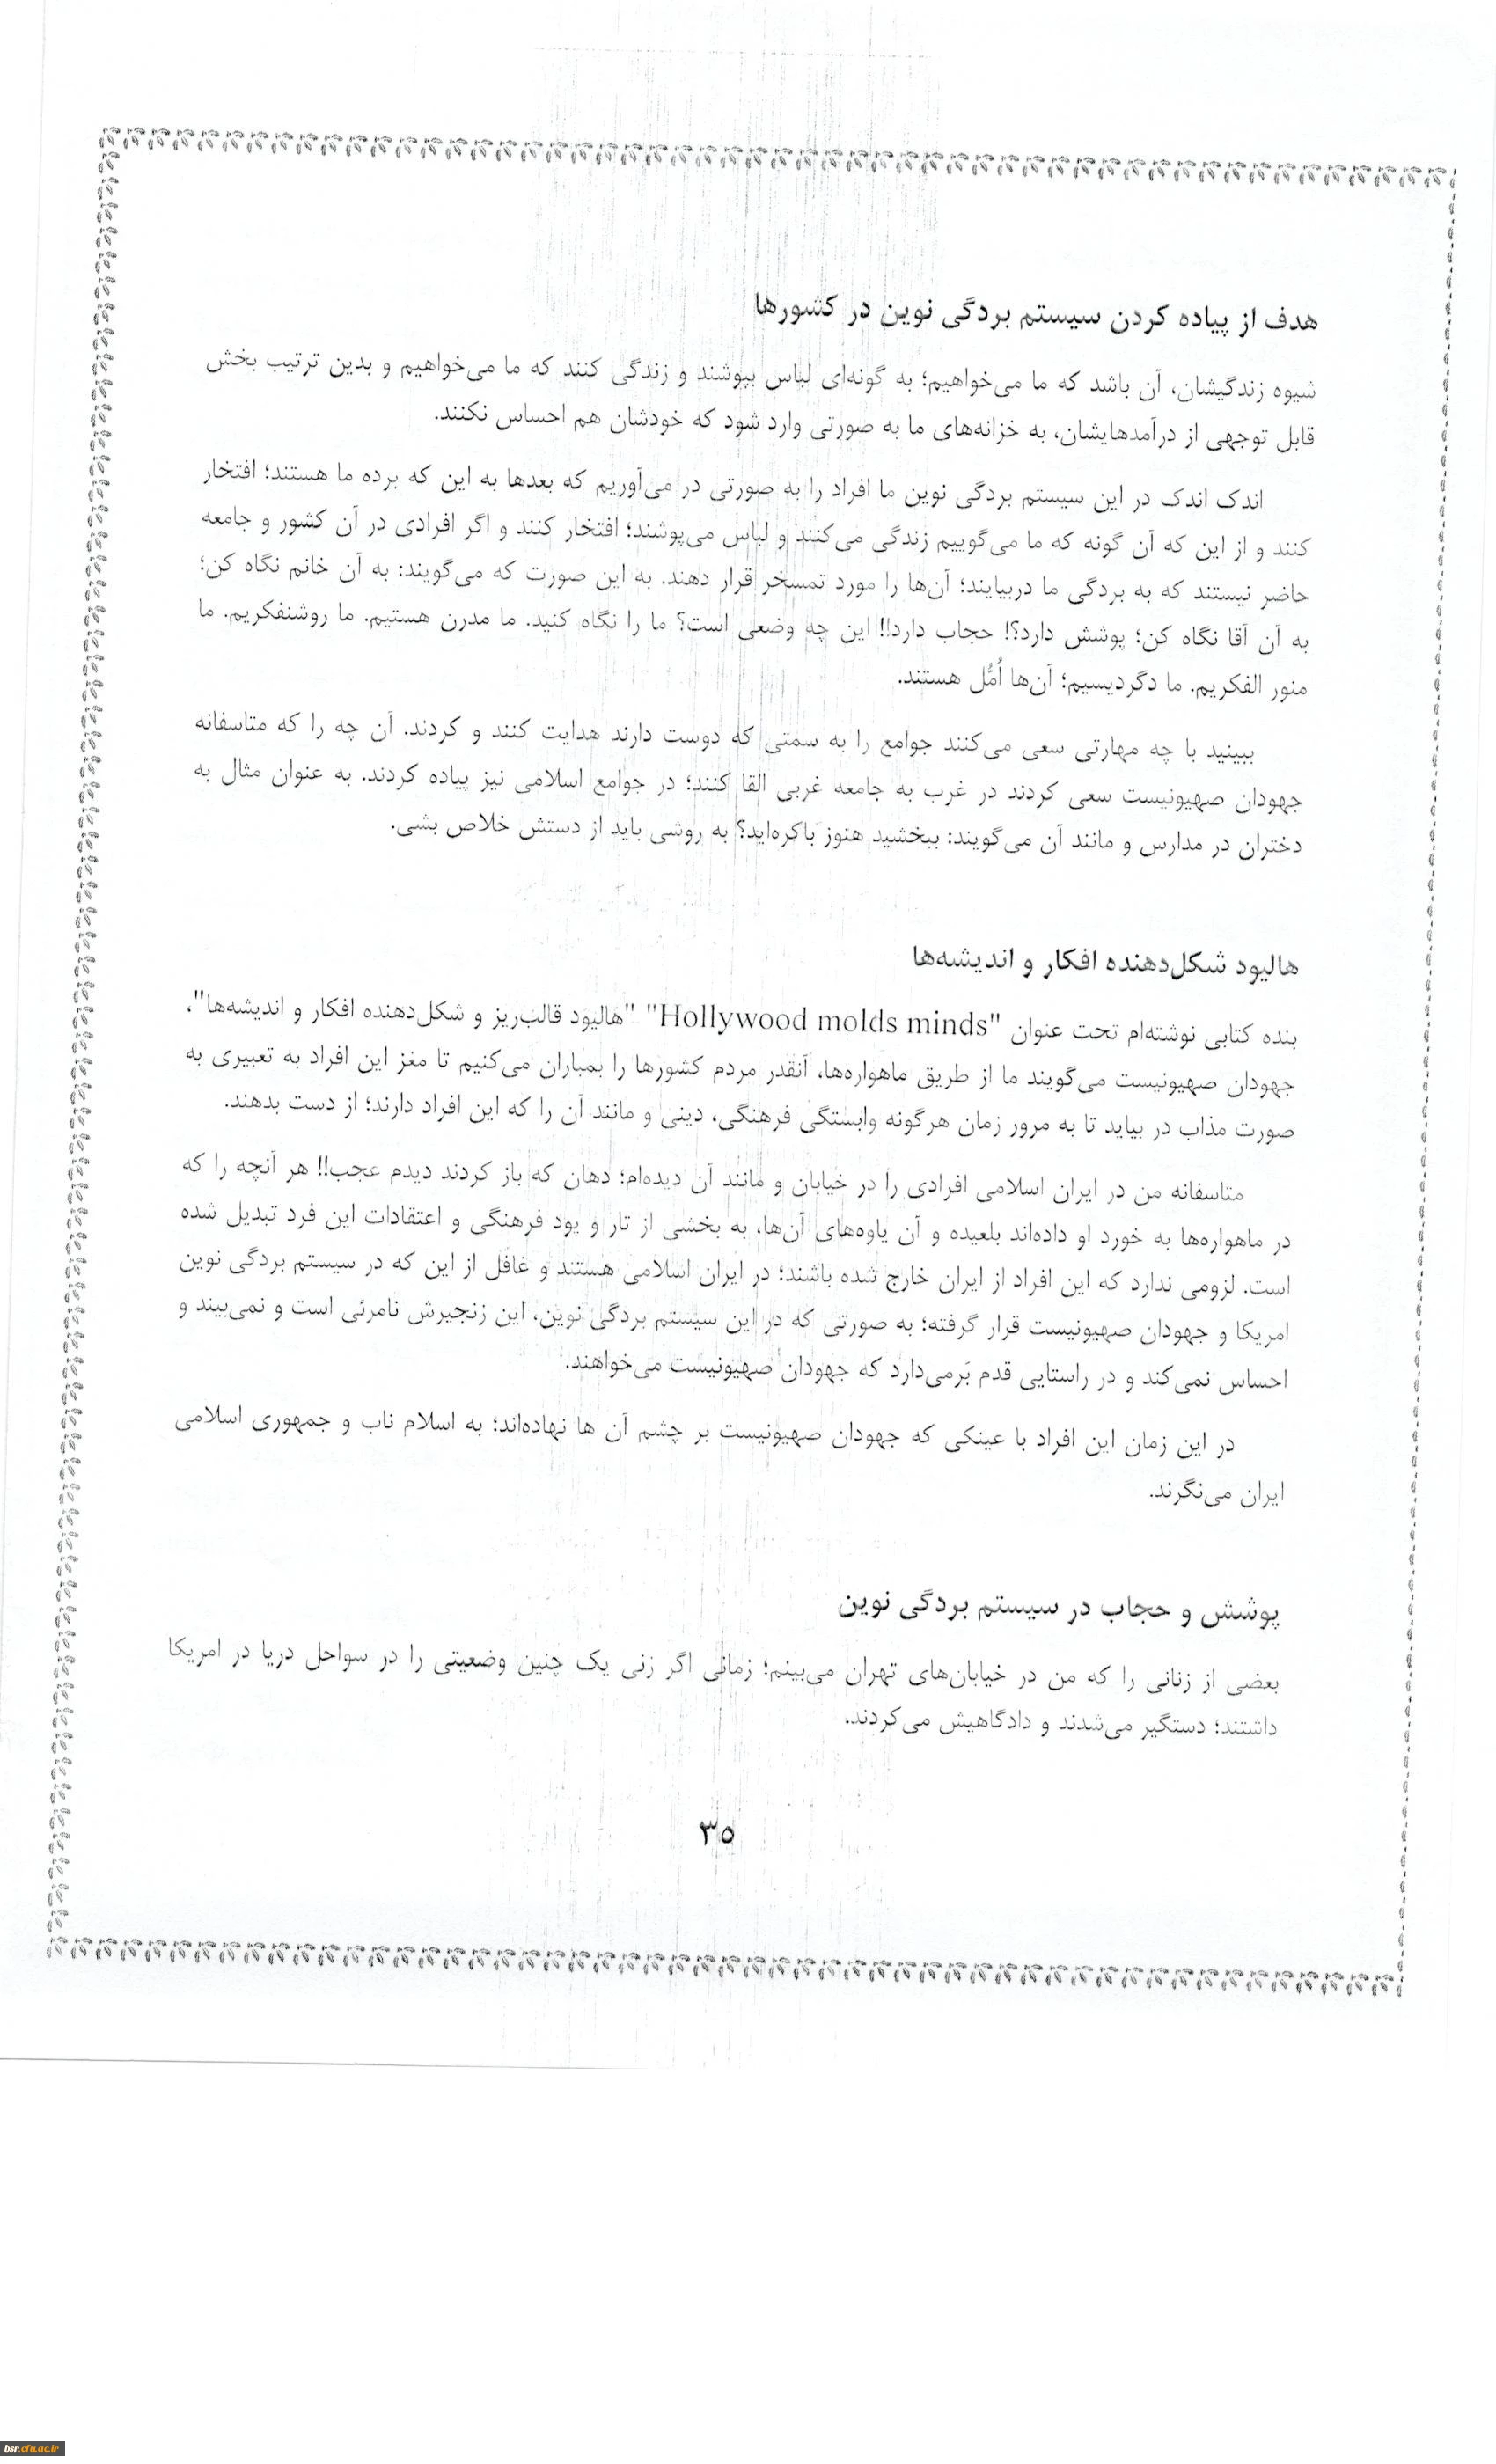 هدف از پیاده کردن سیستم بردگی نوین در کشورها
شیوه زندگیشان، آن باشد که ما می‌خواهیم؛ به گونه‌ای لباس بپوشند و زندگی کنند که ما می‌خواهیم و بدین ترتیب بخش
قابل توجهی از درآمدهایشان، به خزانه‌های ما به صورتی وارد شود که خودشان هم احساس نکنند.
اندک اندک در این سیستم بردگی نوین ما افراد را به صورتی در می‌آوریم که بعدها به این که برده ما هستند؛ افتخار
کنند و از این که آن گونه که ما می‌گوییم زندگی می‌کنند و لباس می‌پوشند؛ افتخار کنند و اگر افرادی در آن کشور و جامعه
حاضر نیستند که به بردگی ما دربیایند؛ آن‌ها را مورد تمسخر قرار دهند. به این صورت که می‌گویند: به آن خانم نگاه کن؛
به آن آقا نگاه کن؛ پوشش دارد؟! حجاب دارد!! این چه وضعی است؟ ما را نگاه کنید. ما مدرن هستیم. ما روشنفکریم. ما
منور الفکریم. ما دگردیسیم؛ آن‌ها اُمُّل هستند.
ببینید با چه مهارتی سعی می‌کنند جوامع را به سمتی که دوست دارند هدایت کنند و کردند. آن چه را که متاسفانه
جهودان صهیونیست سعی کردند در غرب به جامعه غربی القا کنند؛ در جوامع اسلامی نیز پیاده کردند. به عنوان مثال به
دختران در مدارس و مانند آن می‌گویند: ببخشید هنوز باکره‌اید؟ به روشی باید از دستش خلاص بشی.
هالیود شکل‌دهنده افکار و اندیشه‌ها
بنده کتابی نوشته‌ام تحت عنوان "Hollywood molds minds" "هالیود قالب‌ریز و شکل‌دهنده افکار و اندیشه‌ها"،
جهودان صهیونیست می‌گویند ما از طریق ماهواره‌ها، آنقدر مردم کشورها را بمباران می‌کنیم تا مغز این افراد به تعبیری به
صورت مذاب در بیاید تا به مرور زمان هرگونه وابستگی فرهنگی، دینی و مانند آن را که این افراد دارند؛ از دست بدهند.
متاسفانه من در ایران اسلامی افرادی را در خیابان و مانند آن دیده‌ام؛ دهان که باز کردند دیدم عجب!! هر آنچه را که
در ماهواره‌ها به خورد او داده‌اند بلعیده و آن یاوه‌های آن‌ها، به بخشی از تار و پود فرهنگی و اعتقادات این فرد تبدیل شده
است. لزومی ندارد که این افراد از ایران خارج شده باشند؛ در ایران اسلامی هستند و غافل از این که در سیستم بردگی نوین
امریکا و جهودان صهیونیست قرار گرفته؛ به صورتی که در این سیستم بردگی نوین، این زنجیرش نامرئی است و نمی‌بیند و
احساس نمی‌کند و در راستایی قدم بَرمی‌دارد که جهودان صهیونیست می‌خواهند.
در این زمان این افراد با عینکی که جهودان صهیونیست بر چشم آن ها نهاده‌اند؛ به اسلام ناب و جمهوری اسلامی
ایران می‌نگرند.
پوشش و حجاب در سیستم بردگی نوین
بعضی از زنانی را که من در خیابان‌های تهران می‌بینم؛ زمانی اگر زنی یک چنین وضعیتی را در سواحل دریا در امریکا
داشتند؛ دستگیر می‌شدند و دادگاهیش می‌کردند.
۳۵
bsr.cfu.ac.ir